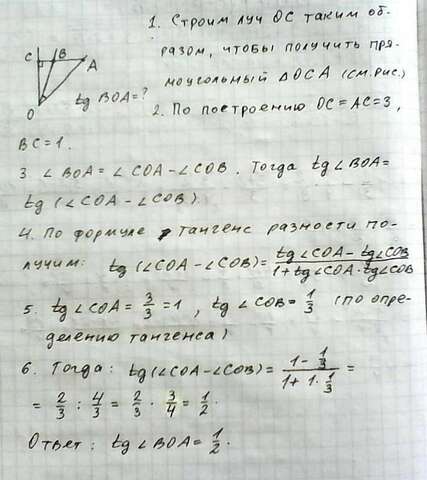 1. Строим луч OC таким об-
разом, чтобы получить пря-
моугольный ΔOCA (см. рис.)
C B A
O
tg BOA = ?
2. По построению OC = AC = 3,
BC = 1.
3 ∠BOA = ∠COA - ∠COB. Тогда tg∠BOA =
tg (∠COA - ∠COB).
4. По формуле тангенс разности по-
лучим: tg (∠COA - ∠COB) = (tg∠COA - tg∠COB)/(1 + tg∠COA · tg∠COB)
5. tg∠COA = 3/3 = 1, tg∠COB = 1/3 (по опре-
делению тангенса)
6. Тогда: tg(∠COA - ∠COB) = (1 - 1/3)/(1 + 1 · 1/3) =
= 2/3 : 4/3 = 2/3 · 3/4 = 1/2.
Ответ: tg∠BOA = 1/2.